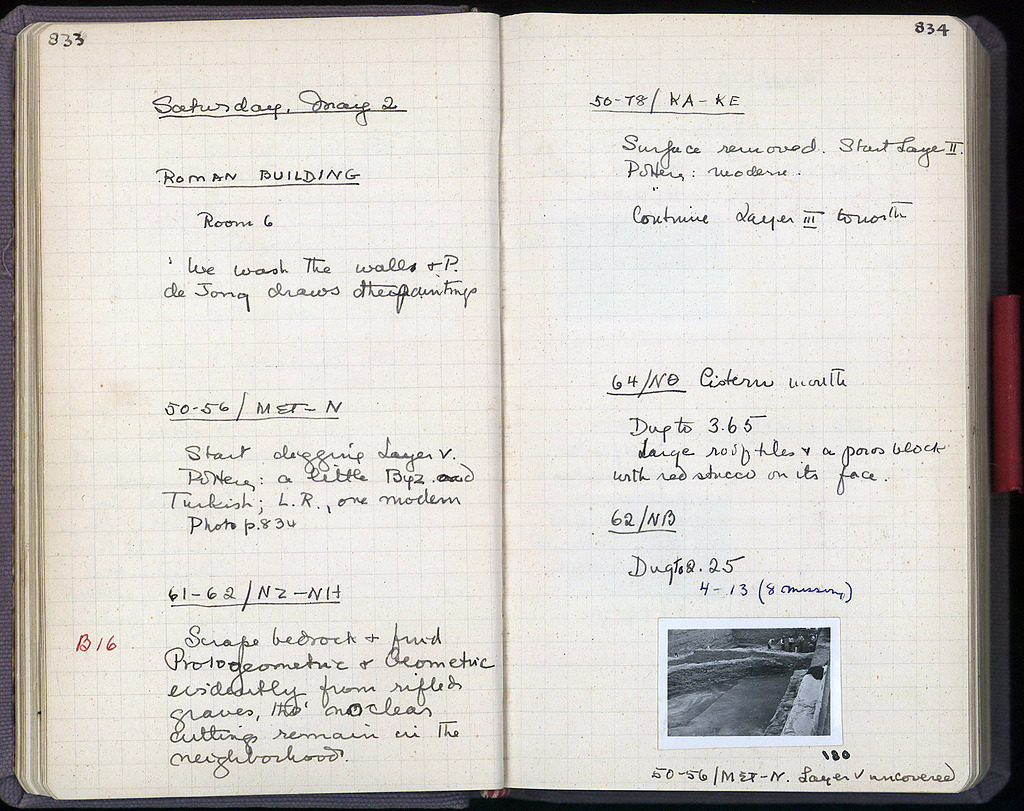 833
Saturday, May 2
ROMAN BUILDING
Room 6
We wash the walls & P.
de Jong draws the paintings
50-56/MΣT-N
Start digging Layer V.
Pottery: a little Byz and
Turkish; L.R., one modern
Photo p. 834
61-62/NZ-NH
B16
Scrape bedrock & find
Protogeometric & Geometric
evidently from rifled
graves, tho' no clear
cuttings remain in the
neighborhood.
834
50-78/KA-KE
Surface removed. Start Layer II.
Pottery: modern.
"
Continue Layer III to north
64/NΘ Cistern mouth
Dug to 3.65
Large roof tiles & a poros block
with red stucco on its face.
62/NB
Dug to 2.25
4-13 (8 missing)
180
50-56/MΣT-N. Layer V uncovered